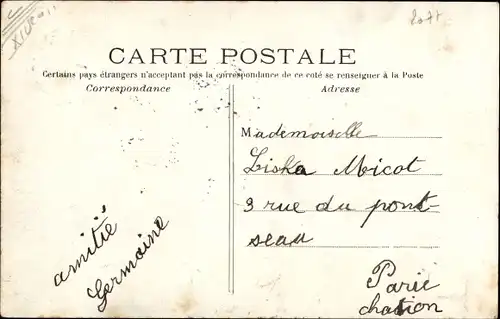 XIVe
2077
CARTE POSTALE
Certains pays étrangers n'acceptant pas la correspondance de ce coté se renseigner à la Poste
Correspondance
Adresse
amitié
Germaine
Mademoiselle
Liska Micot
3 rue du pont-
seau
Paris